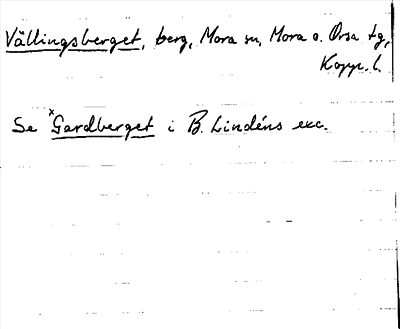 Vällingsberget, berg, Mora sn, Mora o. Orsa tg,
Kopp. l.
Se *Gardberget i B. Lindéns exc.